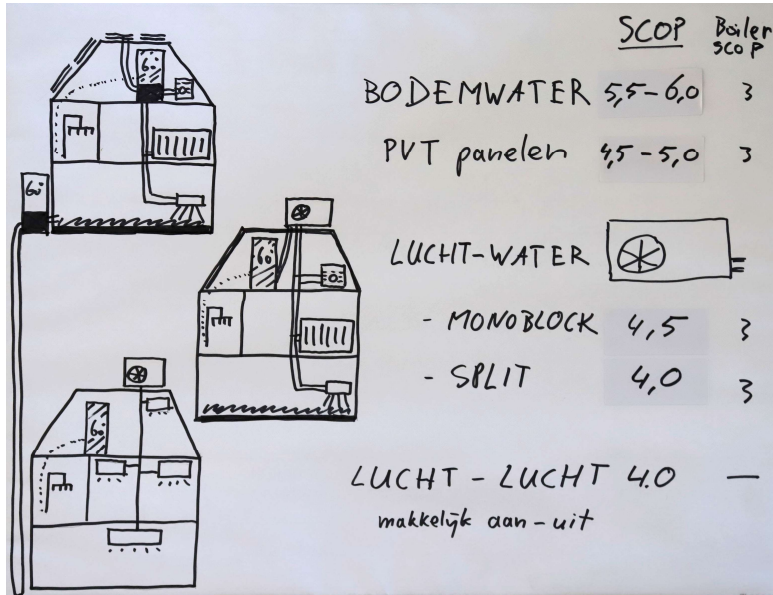 SCOP Boiler
SCOP
BODEMWATER 5,5-6,0 3
PVT panelen 4,5-5,0 3
LUCHT-WATER
- MONOBLOCK 4,5 3
- SPLIT 4,0 3
LUCHT-LUCHT 4.0 —
makkelijk aan-uit
60°
60°
60
60